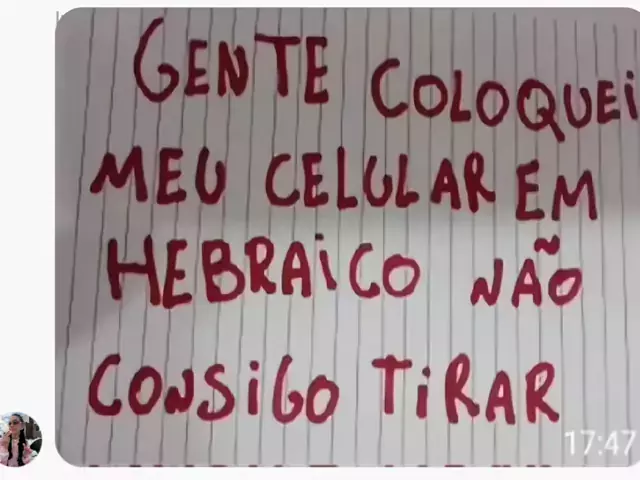 GENTE COLOQUEI
MEU CELULAR EM
HEBRAICO NÃO
CONSIGO TIRAR
17:47